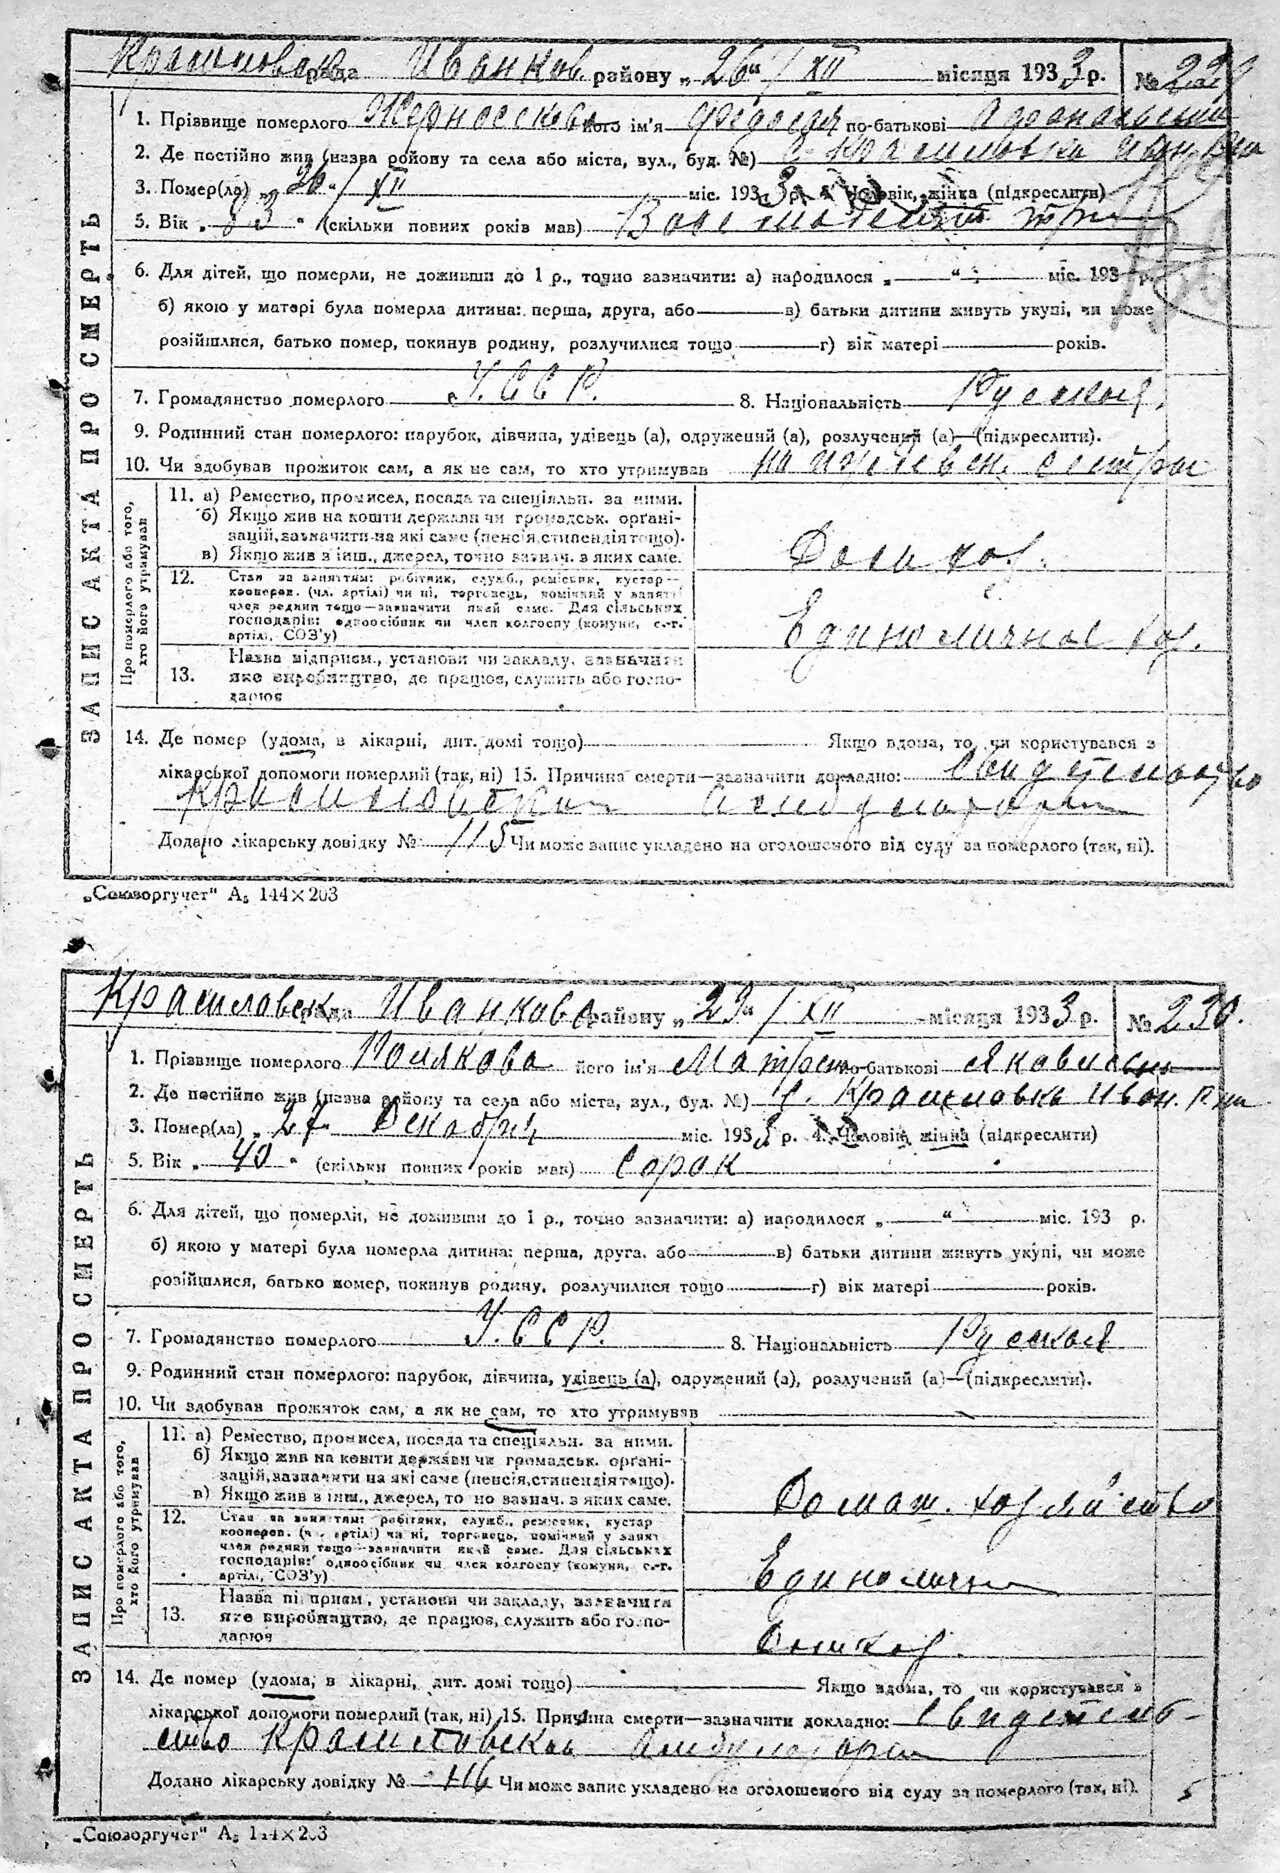 Красиловск рада Иванков. району „26"/XII місяця 1933 р. № 229
ЗАПИС АКТА ПРО СМЕРТЬ
1. Прізвище померлого його ім'я Федосия по-батькові
2. Де постійно жив (назва району та села або міста, вул., буд. №) с. Красиловка Иван. Рна
3. Помер(ла) „26"/XII міс. 1933 р. 4. Чоловік, жінка (підкреслити)
5. Вік „83" (скільки повних років мав) Восемьдесят три
6. Для дітей, що померли, не доживши до 1 р., точно зазначити: а) народилося „ " міс. 193 р.
б) якою у матері була померла дитина: перша, друга, або в) батьки дитини живуть укупі, чи може
розійшлися, батько помер, покинув родину, розлучилися тощо г) вік матері років.
7. Громадянство померлого У.С.С.Р. 8. Національність Русская.
9. Родинний стан померлого: парубок, дівчина, удівець (а), одружений (а), розлучений (а)—(підкреслити).
10. Чи здобував прожиток сам, а як не сам, то хто утримував на иждевен. сестры
Про померлого або того, хто його утримував
11. а) Ремество, промисел, посада та спеціяльн. за ними.
б) Якщо жив на кошти держави чи громадськ. орґані-
зацій, зазначити на які саме (пенсія, стипендія тощо).
в) Якщо жив з інш., джерел, точно зазнач. з яких саме.
Дом. хоз.
12. Стан за заняттям: робітник, служб., ремісник, кустар—
кооперов. (чл. артілі) чи ні, торговець, помічний у занятті
член родини тощо—зазначити який саме. Для сільських
господарів: одноосібник чи член колгоспу (комуни, с.-г.
артілі, СОЗ'у)
Единоличное хоз.
13. Назва підприєм., установи чи закладу, зазначити
яке виробництво, де працює, служить або госпо-
дарює
14. Де помер (удома, в лікарні, дит. домі тощо) Якщо вдома, то чи користувався з
лікарської допомоги померлий (так, ні) 15. Причина смерти—зазначити докладно: Свидетельство
Красиловской Амбулатории
Додано лікарську довідку № 115 Чи може запис укладено на оголошеного від суду за померлого (так, ні).
„Союзоргучет" А₅ 144×203
Красиловск рада Иванково району „29"/XII місяця 1933 р. № 230.
ЗАПИС АКТА ПРО СМЕРТЬ
1. Прізвище померлого Полякова його ім'я Матрена по-батькові Яковлевна
2. Де постійно жив (назва району та села або міста, вул., буд. №) с. Красиловка Иван. Рна
3. Помер(ла) „27 Декабря міс. 1933 р. 4. Чоловік, жінка (підкреслити)
5. Вік „40" (скільки повних років мав) Сорок
6. Для дітей, що померли, не доживши до 1 р., точно зазначити: а) народилося „ " міс. 193 р.
б) якою у матері була померла дитина: перша, друга, або в) батьки дитини живуть укупі, чи може
розійшлися, батько помер, покинув родину, розлучилися тощо г) вік матері років.
7. Громадянство померлого У.С.С.Р. 8. Національність Русская
9. Родинний стан померлого: парубок, дівчина, удівець (а), одружений (а), розлучений (а)—(підкреслити).
10. Чи здобував прожиток сам, а як не сам, то хто утримував
Про померлого або того, хто його утримував
11. а) Ремество, промисел, посада та спеціяльн. за ними.
б) Якщо жив на кошти держави чи громадськ. орґані-
зацій, зазначити на які саме (пенсія, стипендія тощо).
в) Якщо жив з інш., джерел, то но зазнач. з яких саме.
Домаш. хозяйство
12. Стан за заняттям: робітник, служб., ремісник, кустар
кооперов. (ч. артілі) чи ні, торговець, помічний у занят
член родини тощо—зазначити який саме. Для сільських
господарів: одноосібник чи член колгоспу (комуни, с.-г.
артілі, СОЗ'у)
Единолични
13. Назва підприєм., установи чи закладу, зазначити
яке виробництво, де працює, служить або госпо-
дарює
Дом хоз.
14. Де помер (удома, в лікарні, дит. домі тощо) Якщо вдома, то чи користувався з
лікарської допомоги померлий (так, ні) 15. Причина смерти—зазначити докладно: Свидетель-
ство Красиловской Амбулатории
Додано лікарську довідку № 116 Чи може запис укладено на оголошеного від суду за померлого (так, ні). 5
„Союзоргучет" А₅ 144×203